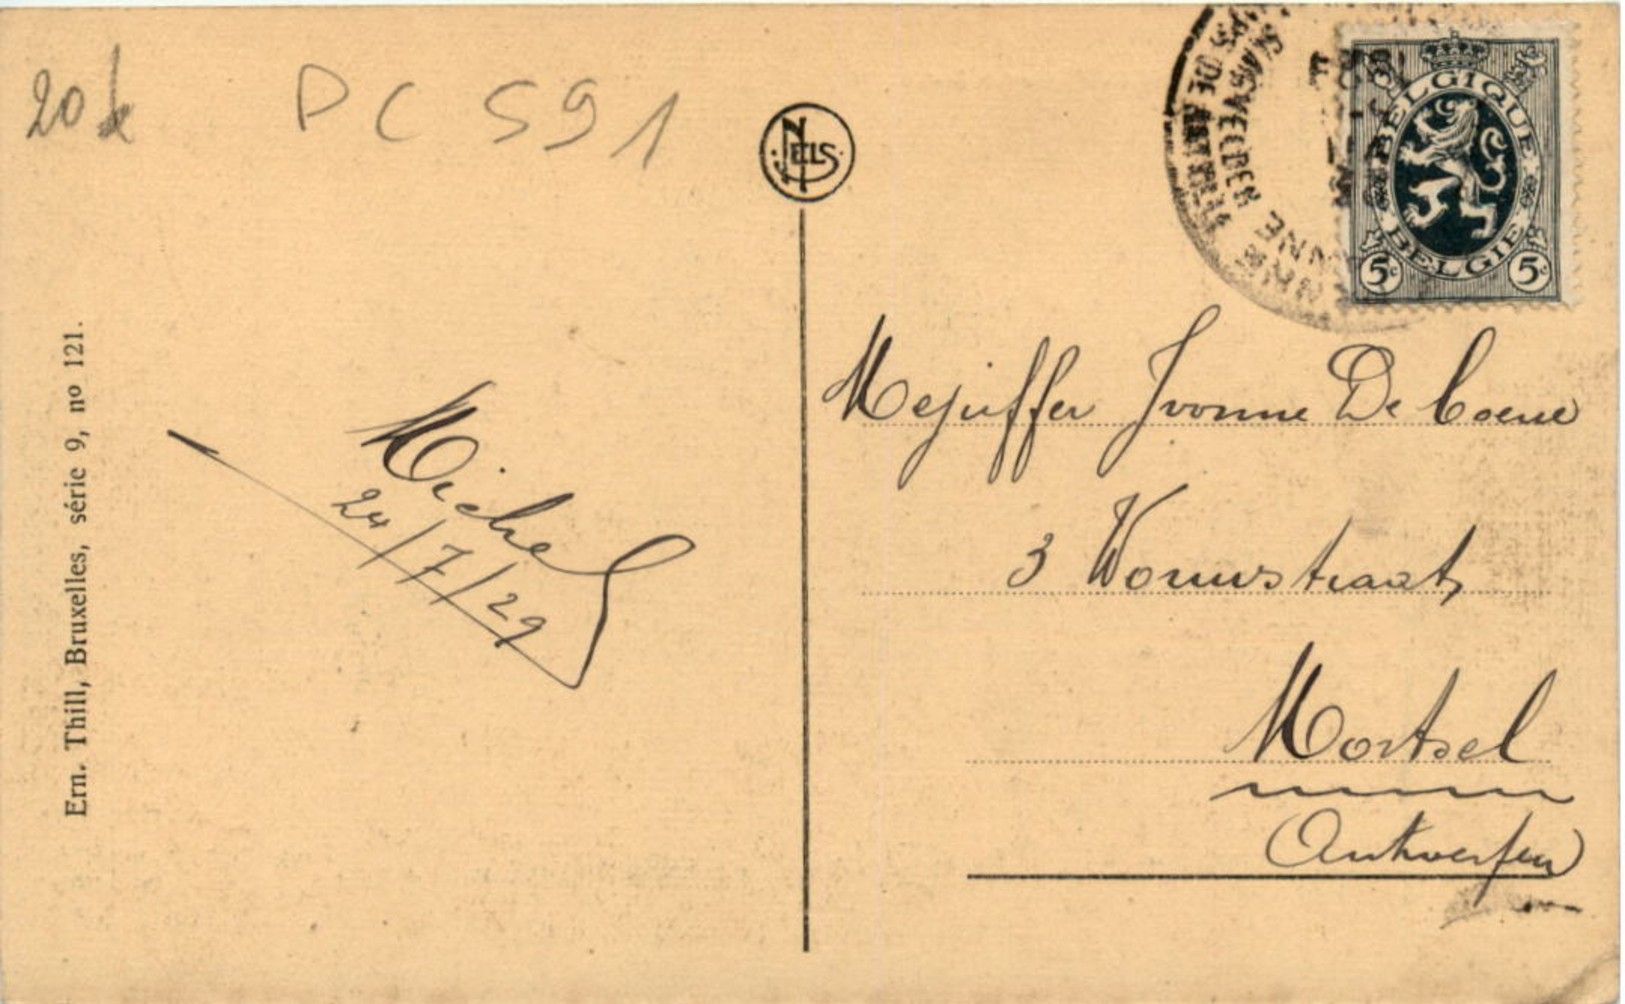 20
PC 591
NELS
BELGIQUE
BELGIE
5c 5c
Ern. Thill, Bruxelles, série 9, nº 121.
Michel
24/7/29
Mejuffer Ivonne De Coene
3 Wouwstraat,
Mortsel
Antwerpen